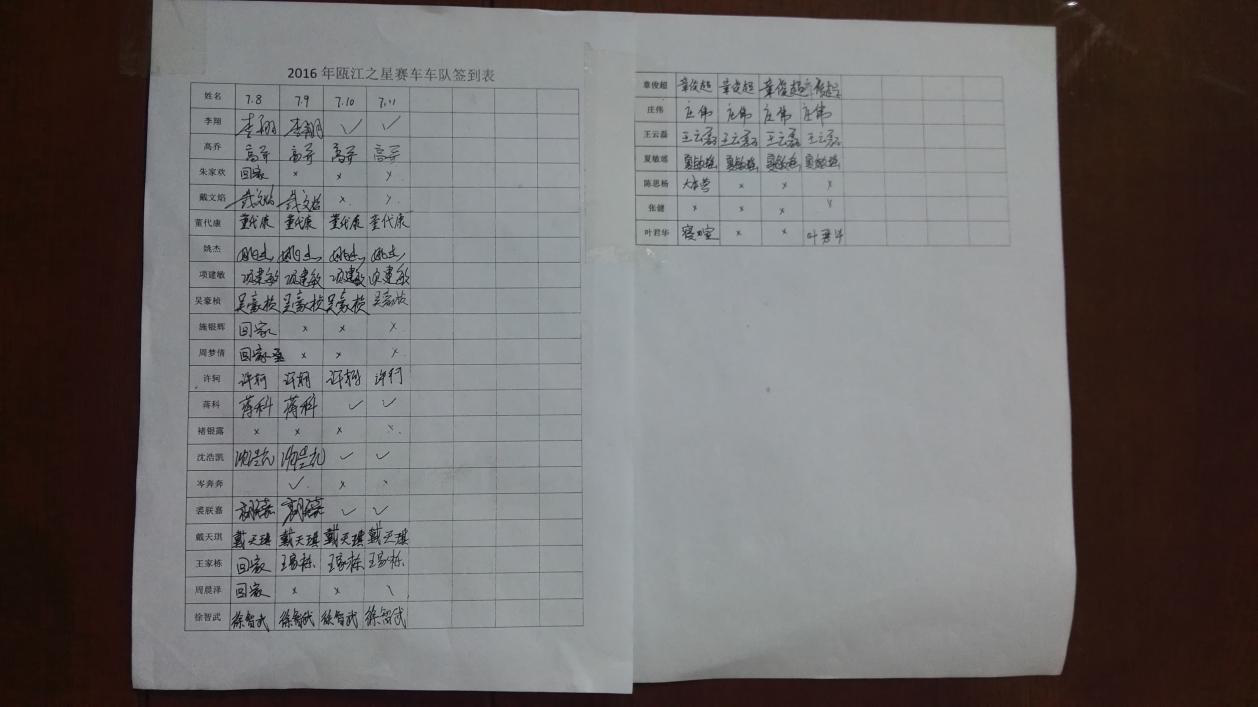 2016 年瓯江之星赛车车队签到表
姓名 7.8 7.9 7.10 7.11
李翔 李翔 李翔 ✓ ✓
高乔 高乔 高乔 高乔 高乔
朱家欢 回家 × × ×
戴文焰 戴文焰 戴文焰 × ×
董代康 董代康 董代康 董代康 董代康
姚杰 姚杰 姚杰 姚杰 姚杰
项建敏 项建敏 项建敏 项建敏 项建敏
吴豪桢 吴豪桢 吴豪桢 吴豪桢 吴豪桢
施银辉 回家 × × ×
周梦倩 回寝室 × × ×
许轲 许轲 许轲 许轲 许轲
蒋科 蒋科 蒋科 ✓ ✓
褚银露 × × × ×
沈浩凯 沈浩凯 沈浩凯 ✓ ✓
岑奔奔 ✓ ×
裘朕嘉 ✓ ✓
戴天琪 戴天琪 戴天琪 戴天琪 戴天琪
王家栋 回家 王家栋 王家栋 王家栋
周晨泽 回家 × ×
徐智武 徐智武 徐智武 徐智武 徐智武
章俊超 章俊超 章俊超 章俊超 章俊超
庄伟 庄伟 庄伟 庄伟 庄伟
王云磊 王云磊 王云磊 王云磊 王云磊
夏敏瑶 夏敏瑶 夏敏瑶 夏敏瑶 夏敏瑶
陈思杨 大本营 × × ×
张健 × × ×
叶君华 寝室 × × 叶君华